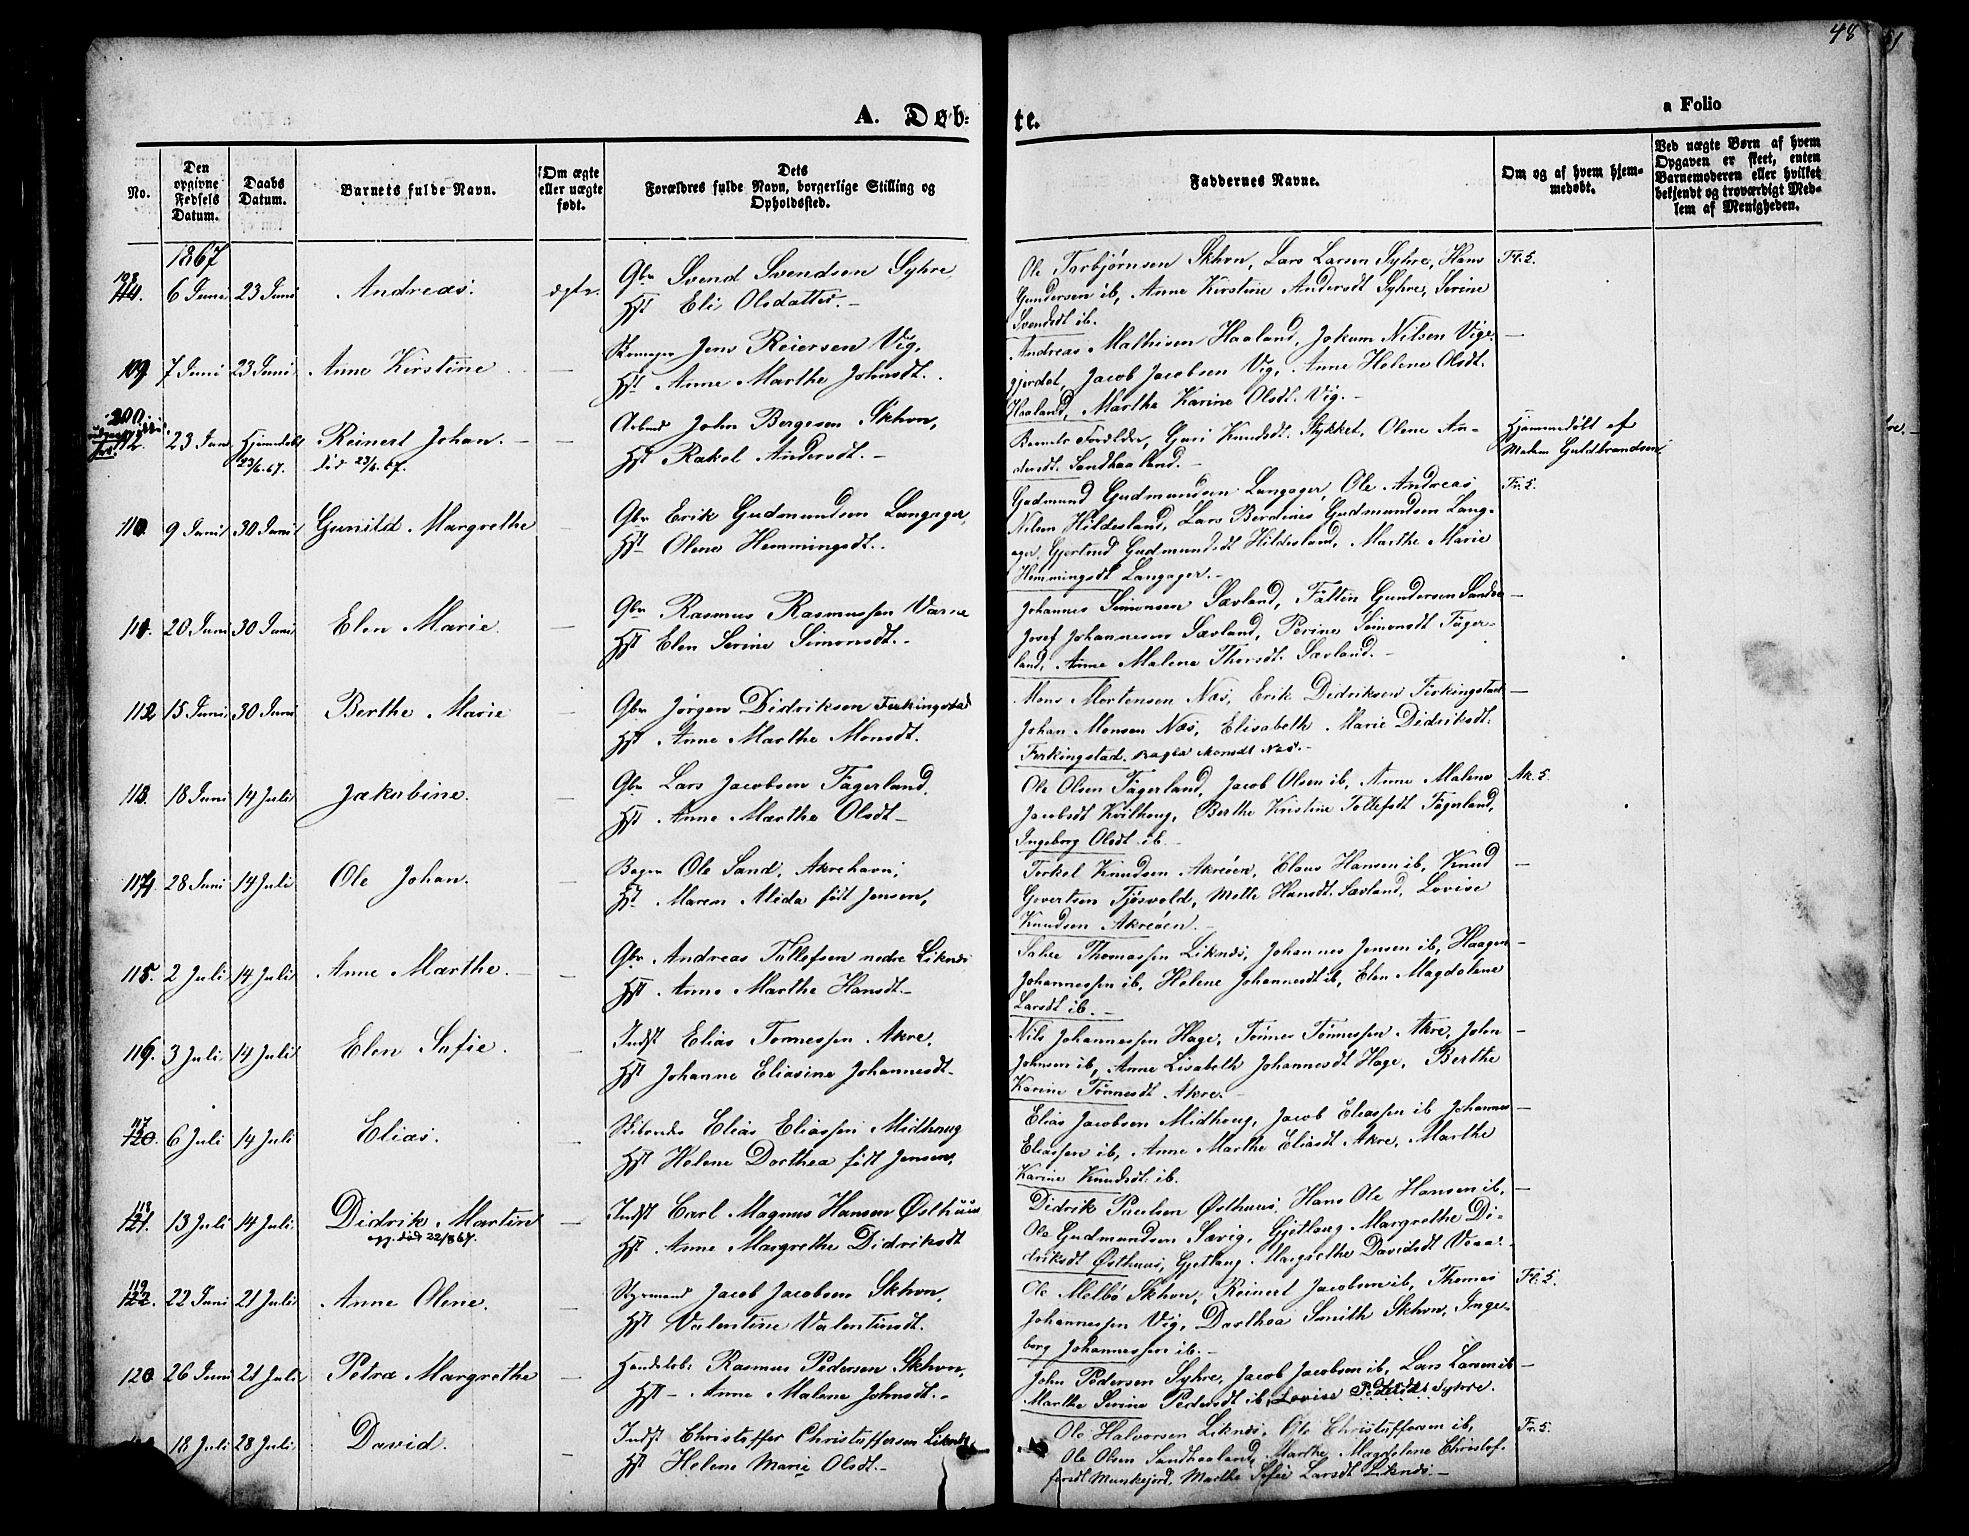 48
A. Døb- te.
a Folio
No.
Den opgivne Fødsels Datum.
Daabs Datum.
Barnets fulde Navn.
Om ægte eller uægte født.
Dets Forældres fulde Navn, borgerlige Stilling og Opholdssted.
Faddernes Navne.
Om og af hvem hjemmedøbt.
Ved uægte Børn af hvem Opgaven er skeet, enten Barnemoderen eller hvilket bekjendt og troværdigt Medlem af Menigheden.
1867
6 Juni 23 Juni Andreas. ægte. Gbr Svend Svendsen Syhre
Hst Eli Olsdatter.-
Ole Torbjørnsen Skhvn, Lars Larsen Syhre, Hans Fl. 5.
Gundersen ib, Anne Kirstine Andersdt Syhre, Serine
Svendsdt ib.
109 7 Juni 23 Juni Anne Kirstine - Jens Reiersen Vig,
Hst Anne Marthe Johnsdt.
Andreas Mathisen Haaland, Jokum Nilsen Vige- -
gjerdet, Jacob Jacobsen Vig, Anne Helene Olsdt.
Haaland, Marthe Karine Olsdt. Vig.-
200.
23 Juni Hjemmedøbt 23/6.67. Reinert Johan. - Arbmd John Børgesen Skhvn,
død 23/6.67. Hst Rakel Andersdt.-
Barnets Forældre, Guri Knudsdt. Stykket, Olene An- Hjemmedøbt af
dersdt. Sandhaaland.- Malene Guldbrandsen
110 9 Juni 30 Juni Gunild Margrethe - Gbr Erik Gudmundsen Langager,
Hst Olene Hemmingsdt.
Gudmund Gudmundsen Langager, Ole Andreas Fr. 5.
Nilsen Hildesland, Lars Berdines Gudmundsen Lang-
ager, Gjertrud Gudmundsdt Hildesland, Marthe Marie
Hemmingsdt Langager.-
111. 20 Juni 30 Juni Elen Marie. - Gbr Rasmus Rasmussen Varne
Hst Elen Serine Simonsdt.-
Johannes Simonsen Sævland, Faltin Gundersen Sandve -
Josef Johannesen Sævland, Perine Simonsdt Fager-
land, Anne Malene Thorsdt. Sævland.-
112 15 Juni 30 Juni Berthe Marie - Gbr Jørgen Didriksen Ferkingstad
Hst Anne Marthe Monsdt.
Mons Mortensen Næs, Erik Didriksen Ferkingstad -
Johan Monsen Næs, Elisabeth Marie Didriksdt.
Ferkingstad, Ragla Monsdt Næs.-
113. 18 Juni 14 Juli Jakobine. - Gbr Lars Jacobsen Fagerland,
Hst Anne Marthe Olsdt-
Ole Olsen Fagerland, Jacob Olsen ib, Anne Malene Ak. 5.
Jacobsdt Kvilhaug, Berthe Kristine Tollefsdt Fagerland,
Ingeborg Olsdt. ib.-
114 28 Juni 14 Juli Ole Johan. - Bager Ole Sand, Akrehavn,
Hst. Maren Alida født Jensen,
Torkel Knudsen Akreøen, Claus Hansen ib, Knud -
Govertsen Tjøsvold, Mette Hansdt. Sævland, Lovise
Knudsen Akreøen.
115. 2 Juli 14 Juli Anne Marthe. - Gbr Andreas Tollefsen nedre Liknes
Hst Anne Marthe Hansdt.-
Thomassen Liknes, Johannes Jensen ib, Haagen -
Johannessen ib, Helene Johannesdt ib, Elen Magdalene
Larsdt ib.-
116. 3 Juli 14 Juli Elen Sofie. - Indst Elias Tønnessen Akre,
Hst Johanne Eliasine Johannesdt.-
Nils Johannessen Hage, Tønnes Tønnessen Akre, John -
Johnsen ib, Anne Lisabeth Johannesdt Hage, Berthe
Karine Tønnesdt Akre.
117
120. 6 Juli 14 Juli Elias. - Elias Eliassen Midhoug
Hst Helene Dorthea født Jensen,
Elias Jacobsen Midhoug, Jacob Eliassen ib Johannes -
Eliassen ib, Anne Marthe Eliasdt Akre, Marthe
Karine Knudsdt. ib.
118
121. 13 Juli 14 Juli Didrik Martin - Indst Carl Magnus Hansen Østhuus
opg. død 22/8 67. Hst Anne Margrethe Didriksdt
Didrik Paulsen Østhuus, Hans Ole Hansen ib, -
Ole Gudmundsen Sævig, Gjetlaug Margrethe Di-
driksdt Østhuus, Gjetlaug Margrethe Davidsdt
119
122. 22 Juni 21 Juli Anne Olene. Styrmand Jacob Jacobsen Skhvn,
Hst Valentine Valentinsdt.
Ole Melbø Skhvn, Reinert Jacobsen ib, Thomas Fl. 5.
Johannessen Vig, Dorthea Smith Skhvn, Inge-
borg Johannessen ib.-
120 26 Juni 21 Juli Petra Margrethe - Handelsb: Rasmus Pedersen Skhvn,
Hst- Anne Malene Johnsdt.-
John Pedersen Syhre, Jacob Jacobsen ib, Lars Larsen ib -
Marthe Serine Pedersdt ib, Lovise Syhre.
18 Juli 28 Juli David. Indst Christoffer Christoffersen Liknes
Hst Helene Marie Olsdt.-
Ole Halvorsen Liknes, Ole Christoffersen ib, Fr. 5.
Ole Olsen Sandhaaland, Marthe Magdalene Christof-
fersdt Munkejord, Marthe Sofie Larsdt Liknes-